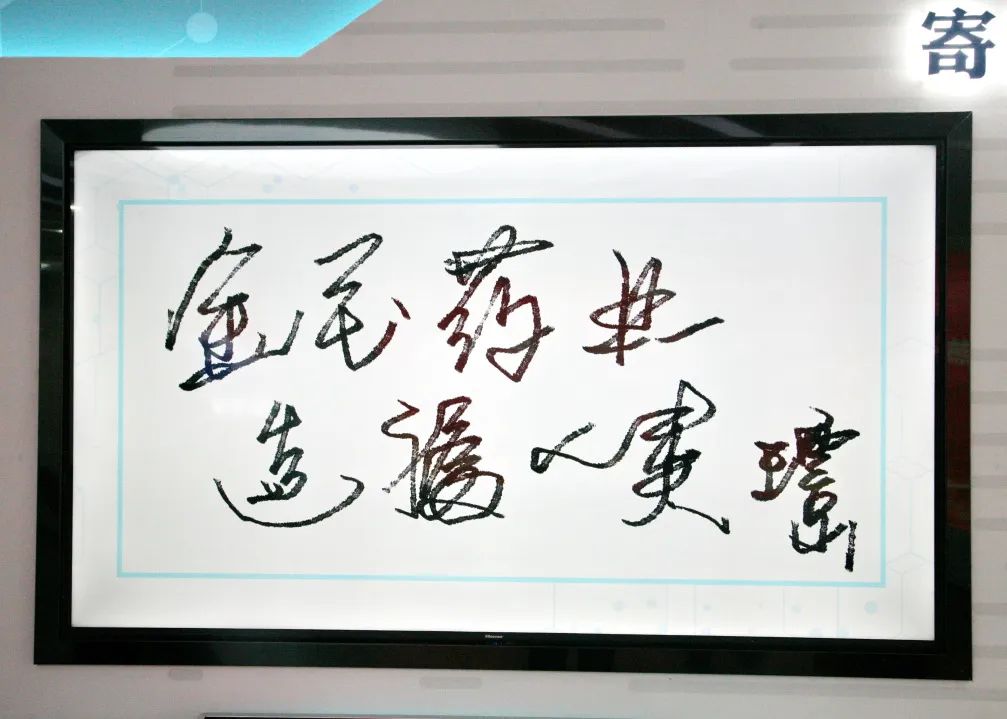 寄
金药业
造福人类
Hisense